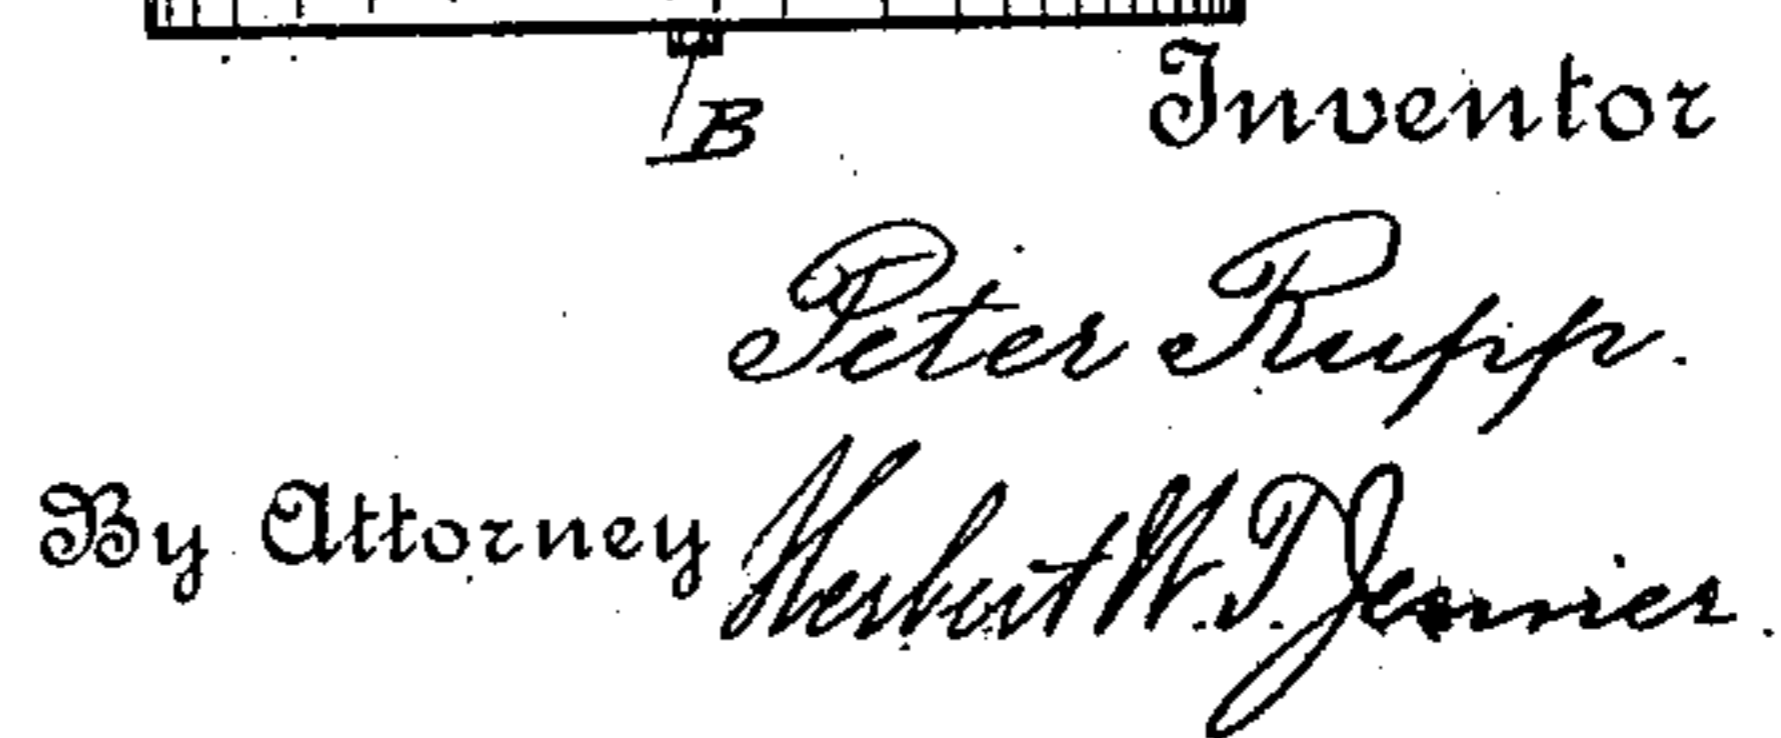 B
Inventor
Peter Rupp.
By Attorney Herbert W. T. Jenner.